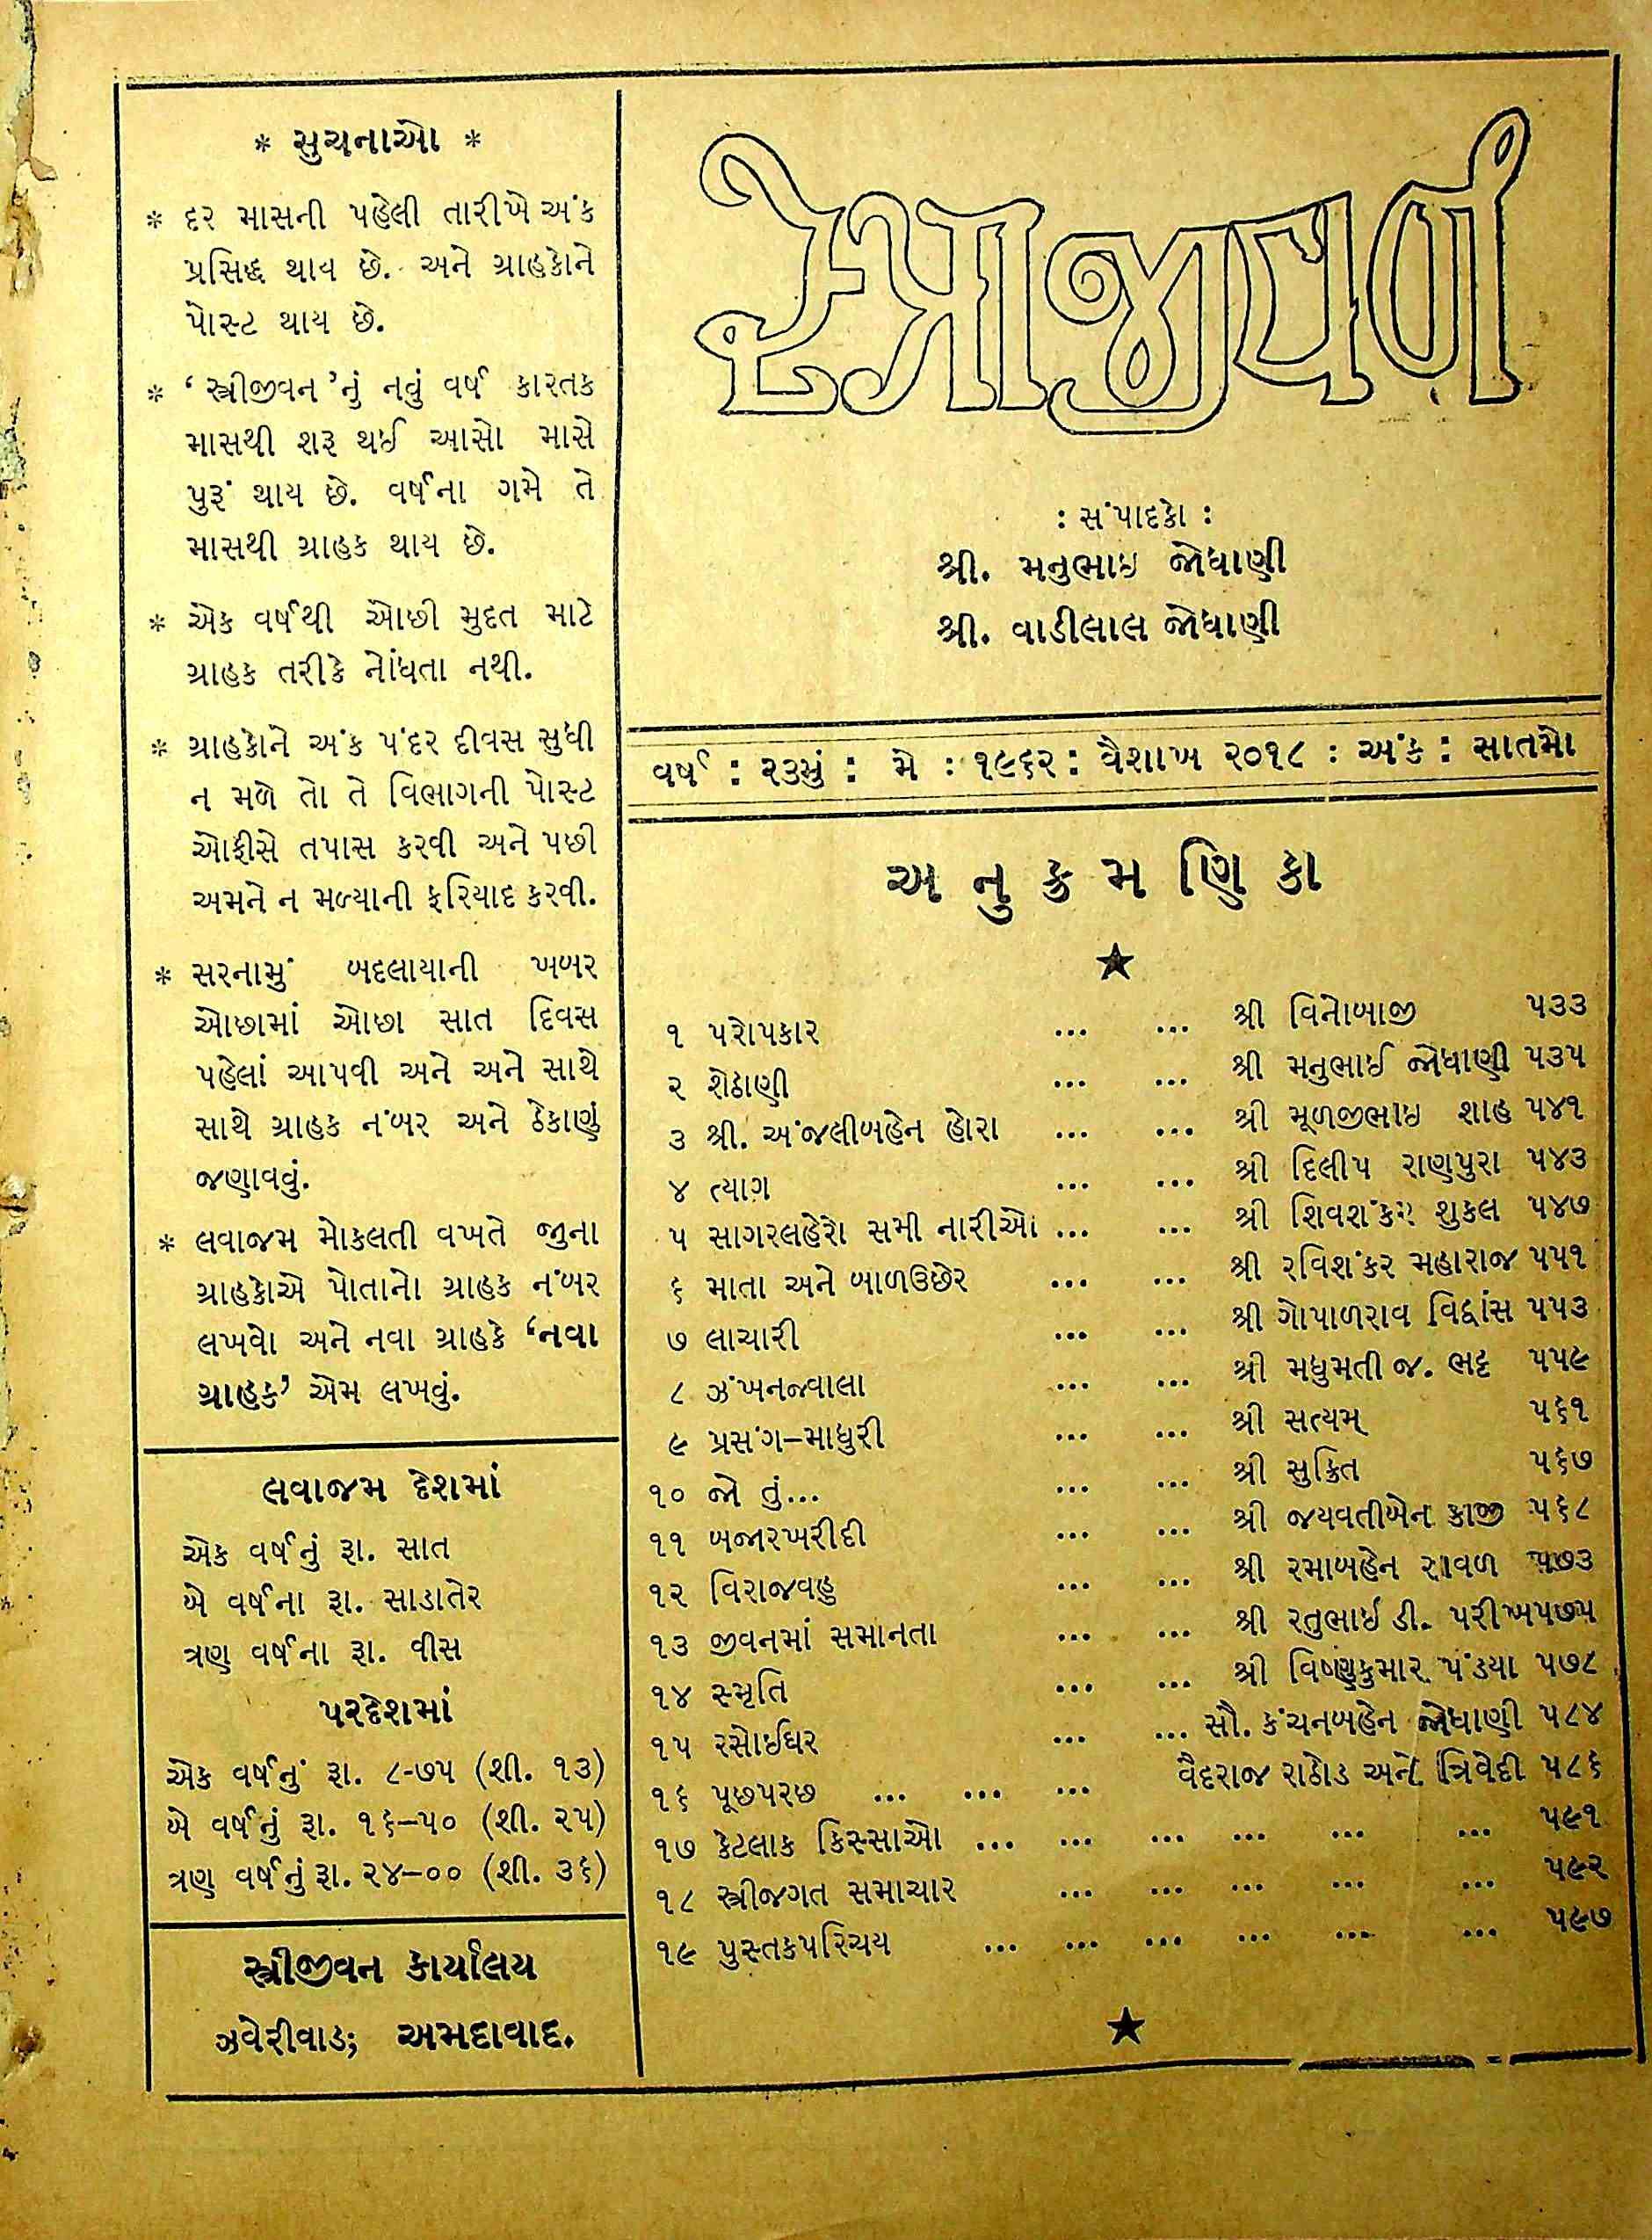 * સુચનાઓ *
* દર માસની પહેલી તારીખે અંક
પ્રસિદ્ધ થાવ છે. અને ગ્રાહકોને
પોસ્ટ થાય છે.
* ‘સ્ત્રીજીવન’નું નવું વર્ષ કારતક
માસથી શરૂ થઈ આસો માસે
પુરૂં થાય છે. વર્ષના ગમે તે
માસથી ગ્રાહક થાય છે.
* એક વર્ષથી ઓછી મુદત માટે
ગ્રાહક તરીકે નોંધતા નથી.
* ગ્રાહકોને અંક પંદર દીવસ સુધી
ન મળે તો તે વિભાગની પોસ્ટ
ઓફીસે તપાસ કરવી અને પછી
અમને ન મળ્યાની ફરિયાદ કરવી.
* સરનામું બદલાયાની ખબર
ઓછામાં ઓછા સાત દિવસ
પહેલાં આપવી અને અને સાથે
સાથે ગ્રાહક નંબર અને ઠેકાણું
જણાવવું.
* લવાજમ મોકલતી વખતે જુના
ગ્રાહકોએ પોતાનો ગ્રાહક નંબર
લખવો અને નવા ગ્રાહકે ‘નવા
ગ્રાહક’ એમ લખવું.
લવાજમ દેશમાં
એક વર્ષનું રૂા. સાત
બે વર્ષના રૂા. સાડાતેર
ત્રણ વર્ષના રૂા. વીસ
પરદેશમાં
એક વર્ષનું રૂા. ૮-૭૫ (શી. ૧૩)
બે વર્ષનું રૂા. ૧૬–૫૦ (શી. ૨૫)
ત્રણ વર્ષનું રૂા. ૨૪–૦૦ (શી. ૩૬)
સ્ત્રીજીવન કાર્યાલય
ઝવેરીવાડ; અમદાવાદ.
સ્ત્રીજીવન
: સંપાદકો :
શ્રી. મનુભાઇ જોધાણી
શ્રી. વાડીલાલ જોધાણી
વર્ષ : ૨૩મું : મે : ૧૯૬૨ : વૈશાખ ૨૦૧૮ : અંક : સાતમો
અ નુ ક્ર મ ણિ કા
૧ પરોપકાર ... ... શ્રી વિનોબાજી ૫૩૩
૨ શેઠાણી ... ... શ્રી મનુભાઈ જોધાણી ૫૩૫
૩ શ્રી. અંજલીબહેન હોરા ... ... શ્રી મૂળજીભાઇ શાહ ૫૪૧
૪ ત્યાગ ... ... શ્રી દિલીપ રાણપુરા ૫૪૩
૫ સાગરલહેરો સમી નારીઓ ... ... શ્રી શિવશંકર શુકલ ૫૪૭
૬ માતા અને બાળઉછેર ... ... શ્રી રવિશંકર મહારાજ ૫૫૧
૭ લાચારી ... ... શ્રી ગોપાળરાવ વિદ્વાંસ ૫૫૩
૮ ઝંખનજ્વાલા ... ... શ્રી મધુમતી જ. ભટ્ટ ૫૫૯
૯ પ્રસંગ–માધુરી ... ... શ્રી સત્યમ્ ૫૬૧
૧૦ જો તું... ... ... શ્રી સુક્રિત ૫૬૭
૧૧ બજારખરીદી ... ... શ્રી જયવતીબેન કાજી ૫૬૮
૧૨ વિરાજવહુ ... ... શ્રી રમાબહેન રાવળ ૫૭૩
૧૩ જીવનમાં સમાનતા ... ... શ્રી રતુભાઈ ડી. પરીખ ૫૭૫
૧૪ સ્મૃતિ ... ... શ્રી વિષ્ણુકુમાર પંડયા ૫૭૮
૧૫ રસોઈઘર ... ... સૌ. કંચનબહેન જોધાણી ૫૮૪
૧૬ પૂછપરછ ... ... ... વૈદરાજ રાઠોડ અને ત્રિવેદી ૫૮૬
૧૭ કેટલાક કિસ્સાઓ ... ... ... ... ... ... ૫૯૧
૧૮ સ્ત્રીજગત સમાચાર ... ... ... ... ... ૫૯૨
૧૯ પુસ્તકપરિચય ... ... ... ... ... ... ૫૯૭